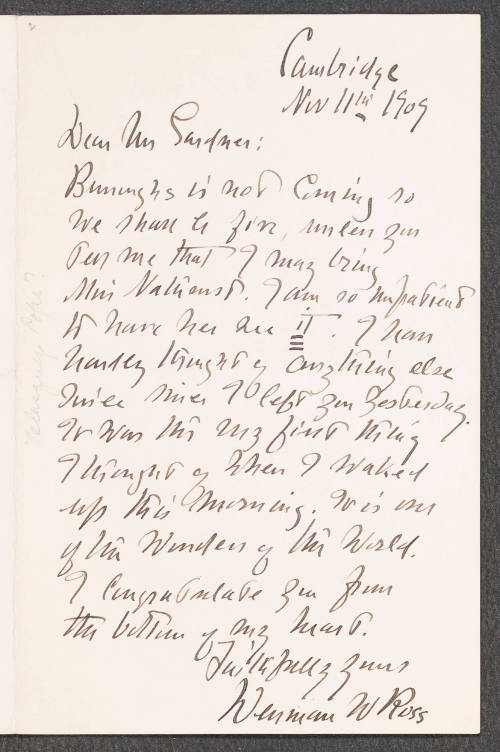 2
Cambridge
Nov 11th 1909
Dear Mrs Gardner:
Burroughs is not coming so
we shall be five, unless you
tell me that I may bring
Miss Nathurst. I am so impatient
to have her see it. I have
hardly thought of anything else
since I left you yesterday.
It was the very first thing
I thought of when I waked
up this morning. It is one
of the Wonders of the World.
I congratulate you from
the bottom of my heart.
Faithfully yours
Denman W Ross
Velasquez Pope?